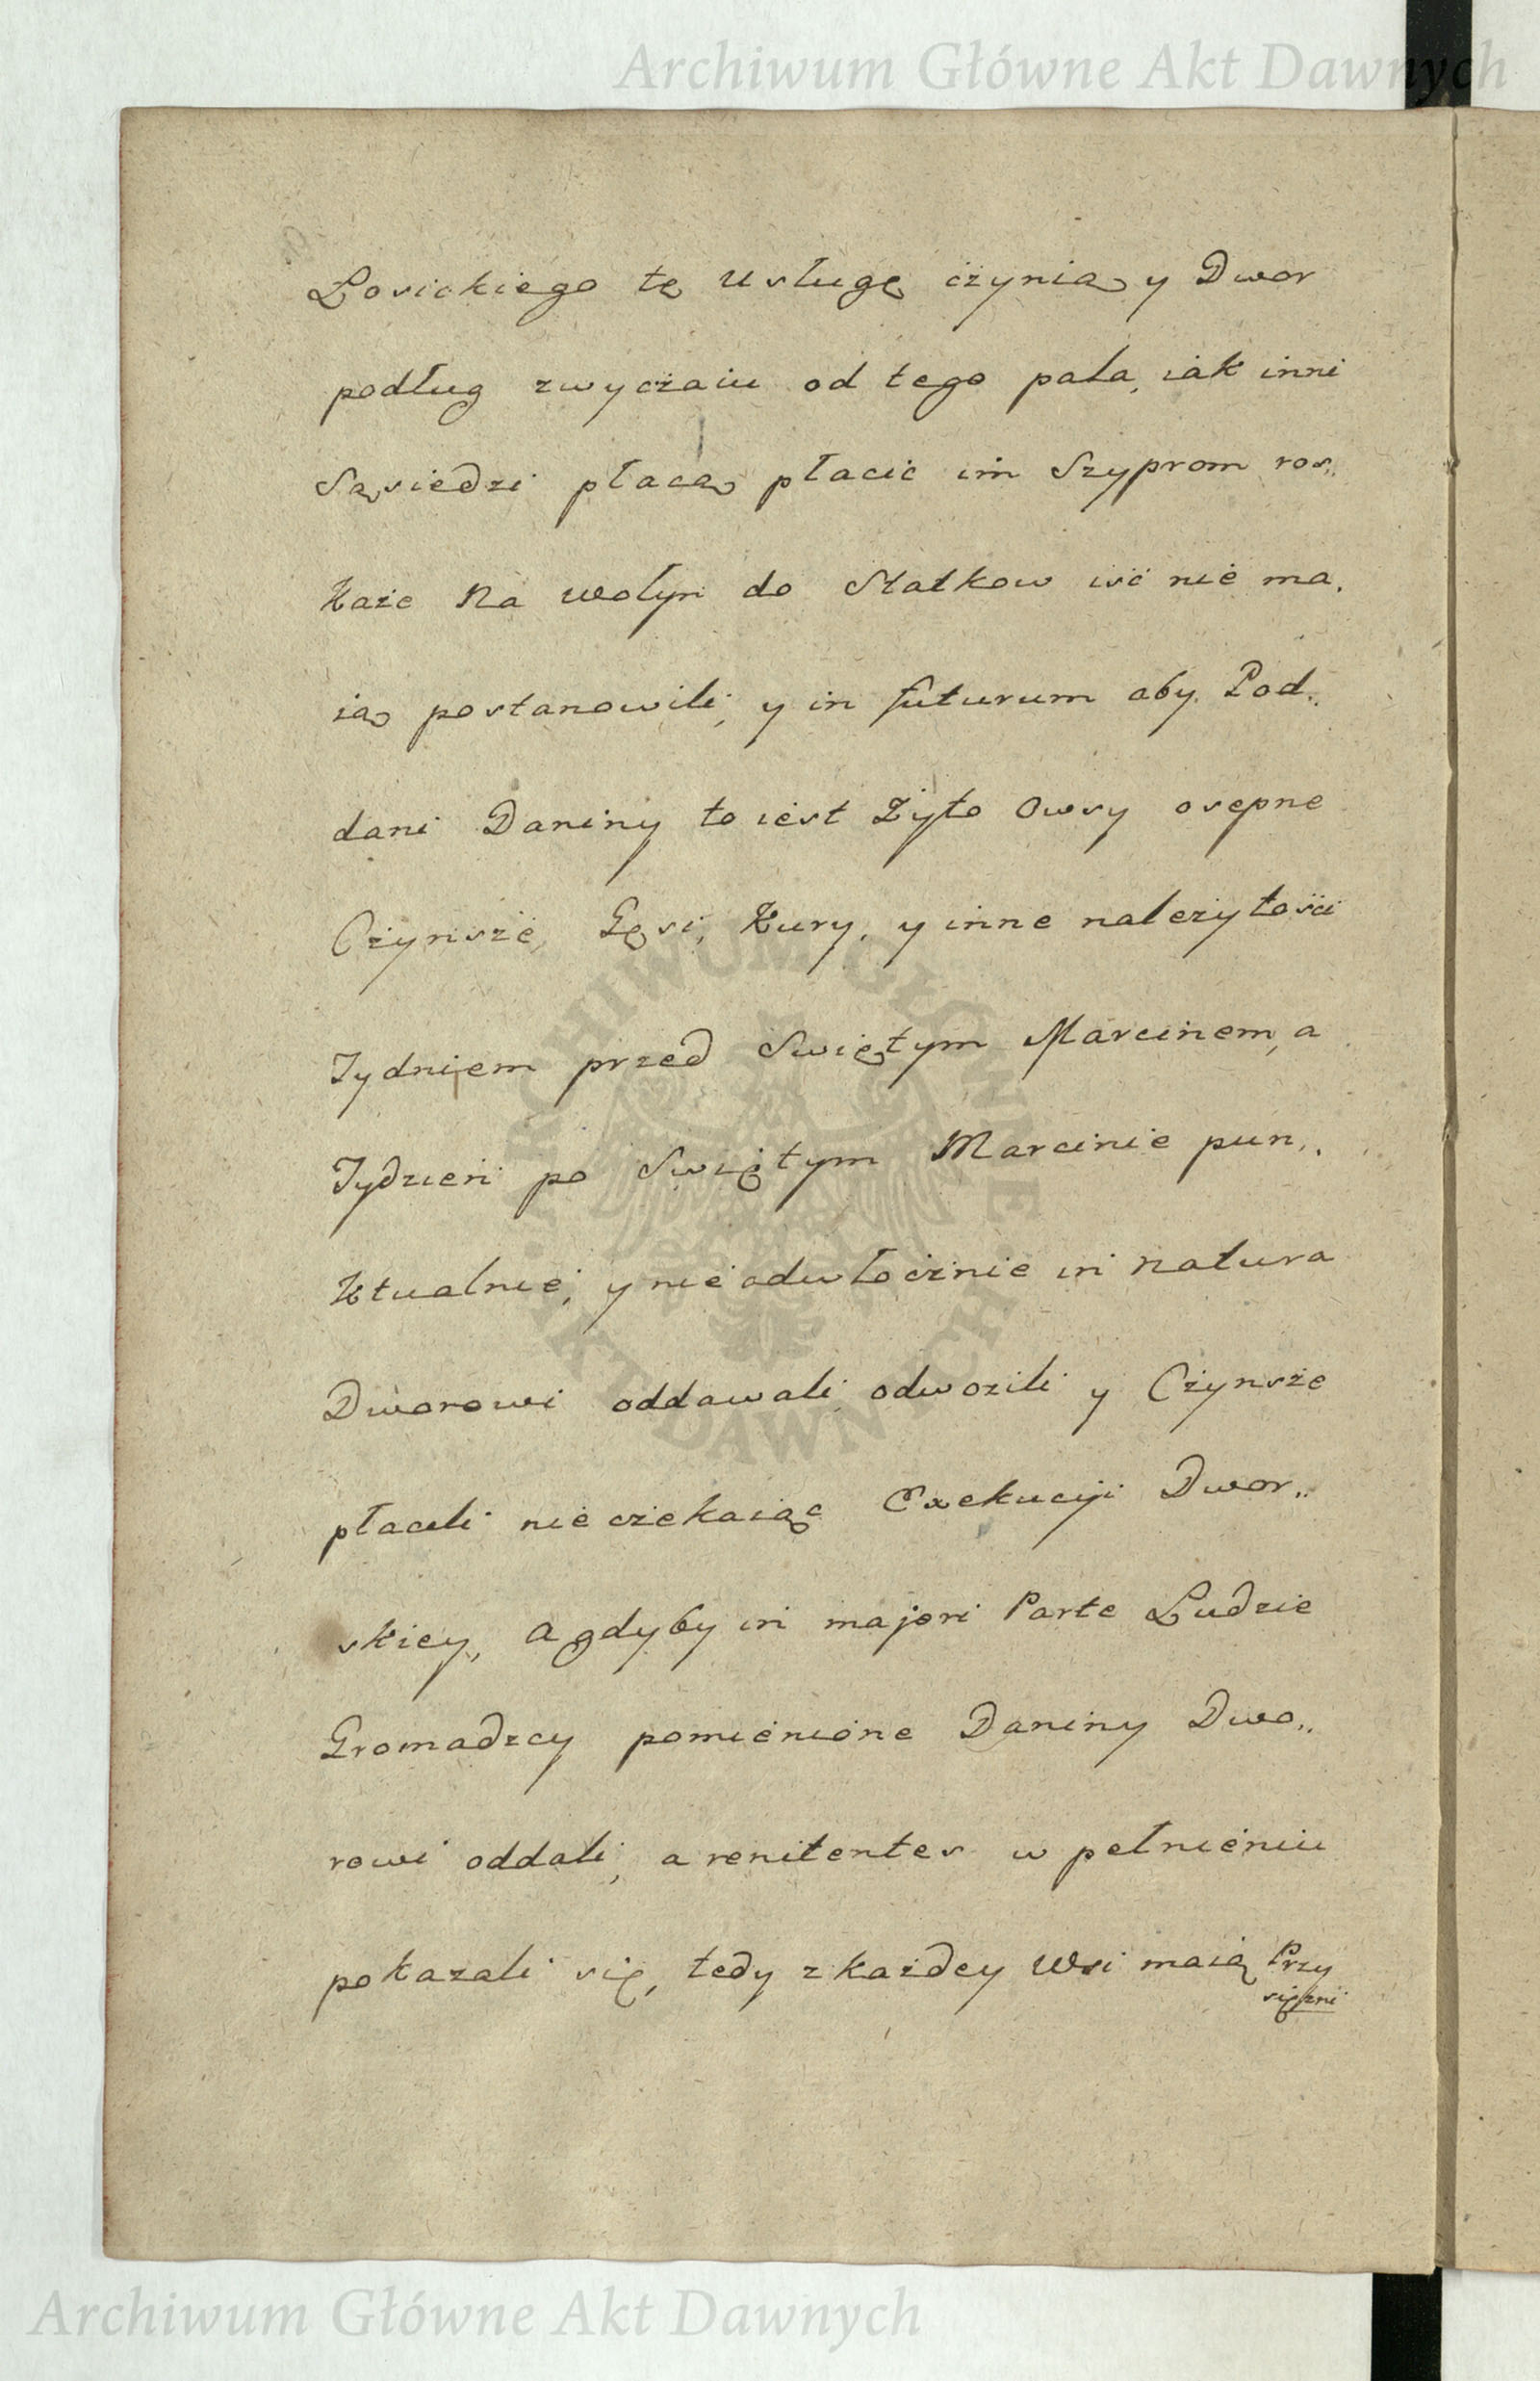 Archiwum Główne Akt Dawnych
Łosickiego tę usługę czynią y Dwor
podług zwyczaiu od tego pala, iak inni
Sąsiedzi płacą płacic im Szyprom ros„
każe Na Wołyn do Statkow iść nie ma„
ią postanowili, y in futurum aby Pod„
dani Daniny to iest Żyto Owsy osepne
Czynsze, Gęsi, Kury, y inne należytości
Tydniem przed Swiętym Marcinem, a
Tydzień po Swiętym Marcinie pun„
ktualnie, y nieodwłocznie in natura
Dworowi oddawali odwozili y Czynsze
płacili nieczekaiąc Exekucyi Dwor„
skiey, A gdyby in majori Parte Ludzie
Gromadzcy pomienione Daniny Dwo„
rowi oddali, a renitentes w pełnieniu
pokazali się, tedy z każdey Wsi maią Przy
siężni
ARCHIWUM GŁÓWNE
AKT DAWNYCH
Archiwum Główne Akt Dawnych